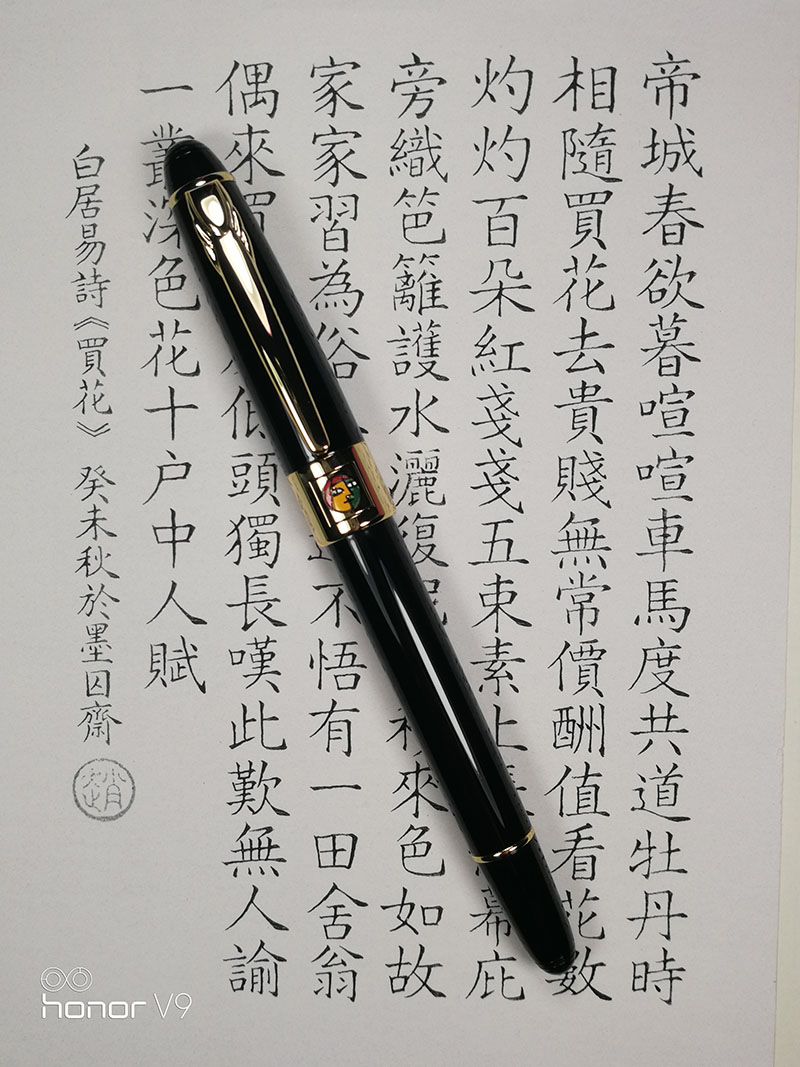 帝城春欲暮喧喧車馬度共道牡丹時
相隨買花去貴賤無常價酬值看花數
灼灼百朵紅戔戔五束素上幕庇
旁織笆籬護水灑復來色如故
家家習為俗不悟有一田舍翁
偶來買低頭獨長嘆此歎無人諭
一叢深色花十户中人賦
白居易詩《買花》 癸未秋於墨囚齋
honor V9